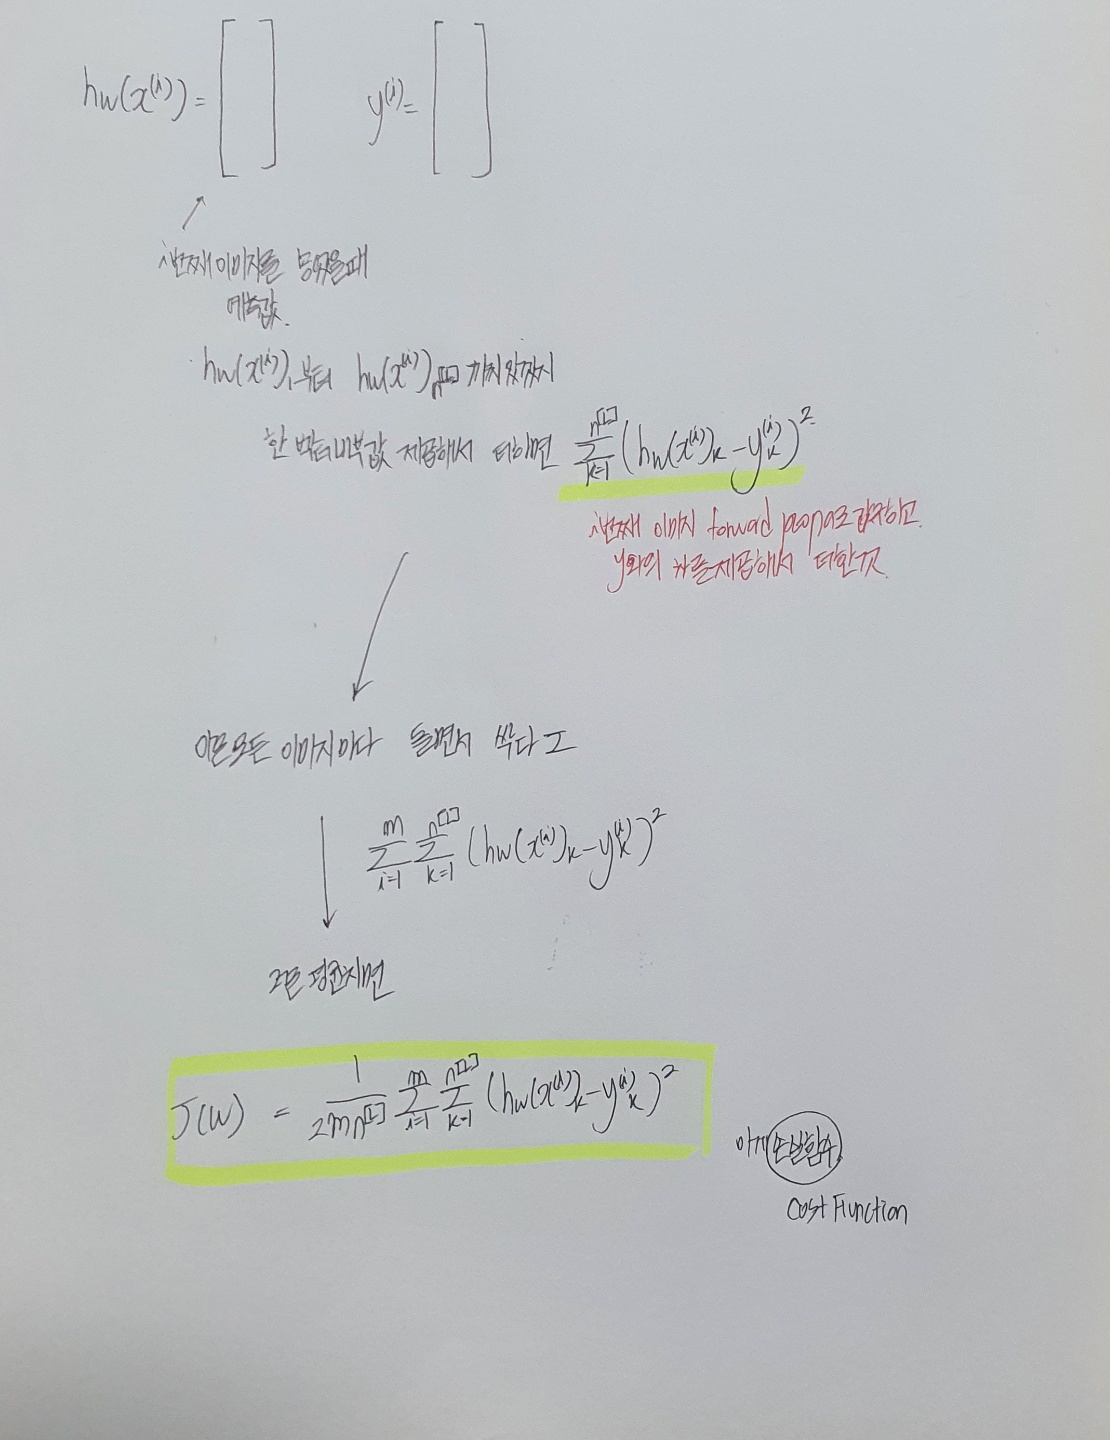 hw(x⁽ⁱ⁾) = [ ] y⁽ⁱ⁾ = [ ]
i번째 이미지를 넣었을때
예측값.
hw(x⁽ⁱ⁾)₁부터 hw(x⁽ⁱ⁾)ₙ[L] 까지 있겠지
한 벡터내부값 제곱해서 더하면 Σ_{k=1}^{n^[L]} (hw(x⁽ⁱ⁾)_k − y⁽ⁱ⁾_k)²
i번째 이미지 forward propa로 하고.
y와의 차를 제곱해서 더한것.
이걸 모든 이미지마다 돌면서 싹다 Σ
Σ_{i=1}^{m} Σ_{k=1}^{n^[L]} (hw(x⁽ⁱ⁾)_k − y⁽ⁱ⁾_k)²
그걸 평균치면
J(W) = 1/(2mn^[L]) Σ_{i=1}^{m} Σ_{k=1}^{n^[L]} (hw(x⁽ⁱ⁾)_k − y⁽ⁱ⁾_k)²
이게 손실함수
Cost Function